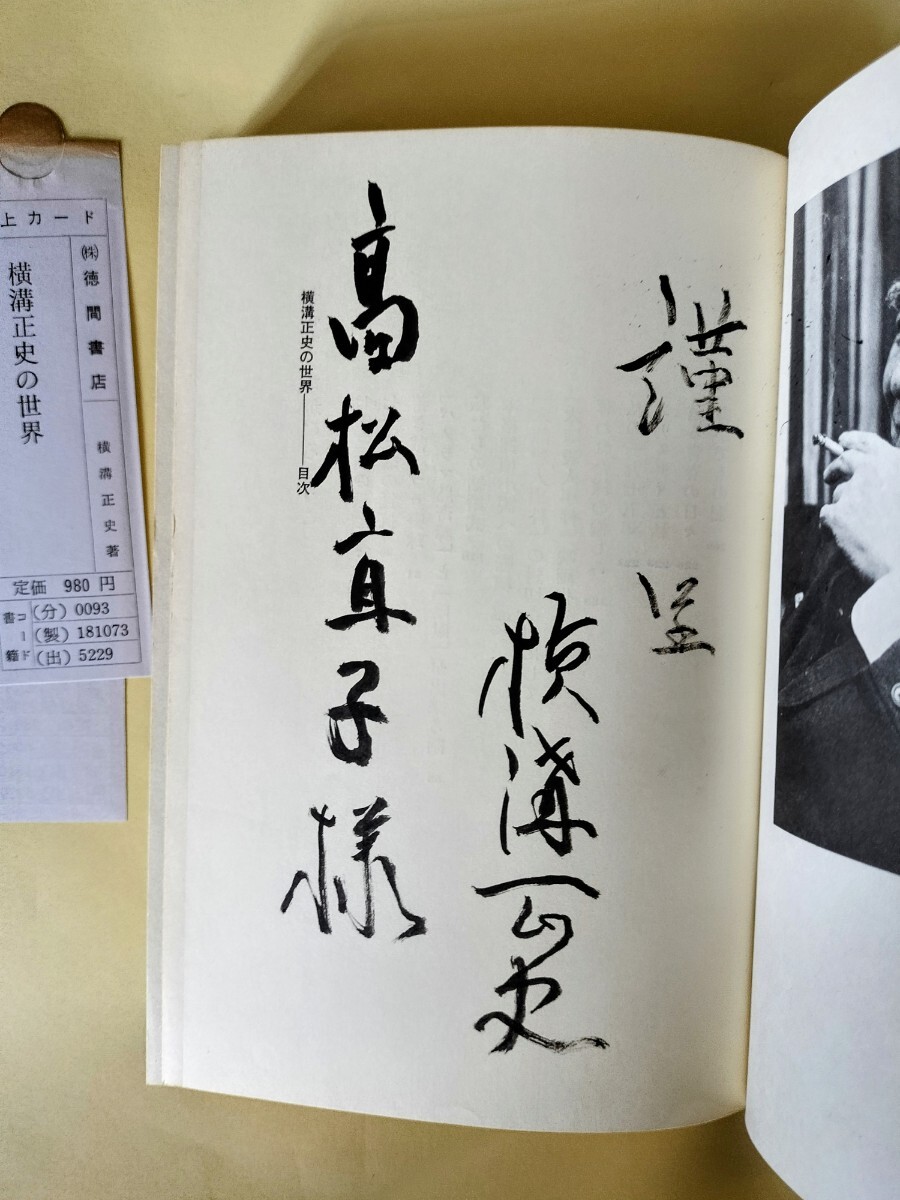 謹呈
横溝正史
高松直子様
横溝正史の世界――目次
上カード
㈱徳間書店
横溝正史著
横溝正史の世界
定価 980円
書籍コード
(分) 0093
(製) 181073
(出) 5229